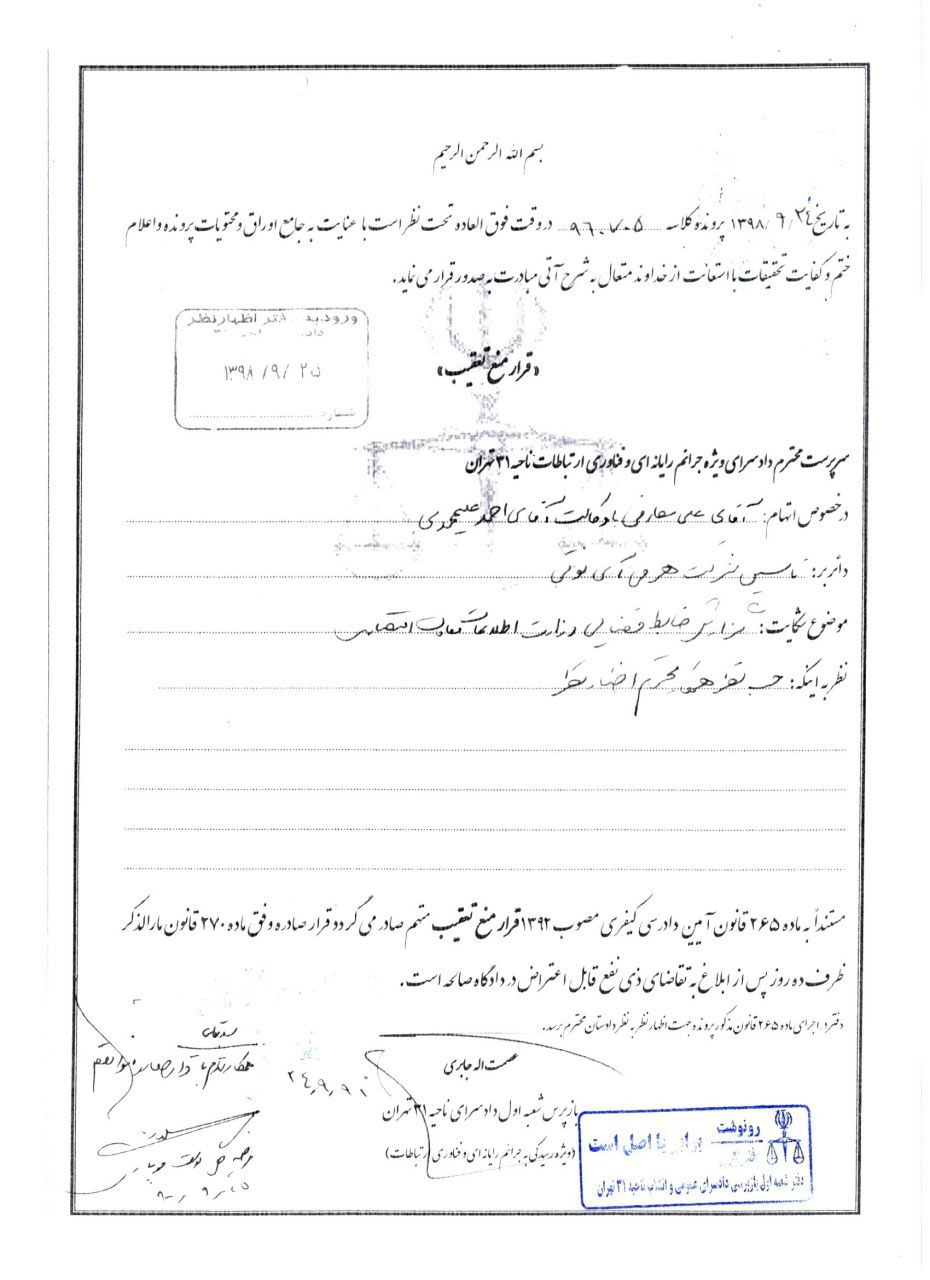 بسم الله الرحمن الرحیم
به تاریخ ۱۳۹۸/۹/۲۴ پرونده کلاسه ۹۶۰۷۰۵ در وقت فوق العاده تحت نظر است با عنایت به جامع اوراق و محتویات پرونده و اعلام
ختم و کفایت تحقیقات با استعانت از خداوند متعال به شرح آتی مبادرت به صدور قرار می نماید.
ورود به دفتر اظهار نظر
۱۳۹۸/۹/۲۵
شماره
«قرار منع تعقیب»
سرپرست محترم دادسرای ویژه جرائم رایانه ای و فناوری ارتباطات ناحیه ۳۱ تهران
در خصوص اتهام: آقای علی معارفی با وکالت آقای احمد علیمحمدی
دائر بر: تاسیس شرکت هرمی
موضوع شکایت: گزارش ضابط قضایی وزارت اطلاعات معاونت اقتصادی
نظر به اینکه: حسب نظر
مستنداً به ماده ۲۶۵ قانون آیین دادرسی کیفری مصوب ۱۳۹۲ قرار منع تعقیب متهم صادر می گردد قرار صادره وفق ماده ۲۷۰ قانون مارالذکر
ظرف ده روز پس از ابلاغ به تقاضای ذی نفع قابل اعتراض در دادگاه صالحه است.
دفتر: اجرای ماده ۲۶۵ قانون مذکور پرونده جهت اظهار نظر به نظر دادستان محترم برسد.
عصمت اله جابری
بازپرس شعبه اول دادسرای ناحیه ۳۱ تهران
(ویژه رسیدگی به جرائم رایانه ای و فناوری ارتباطات)
رونوشت برابر با اصل است
دفتر شعبه اول بازپرسی دادسرای عمومی و انقلاب ناحیه ۳۱ تهران